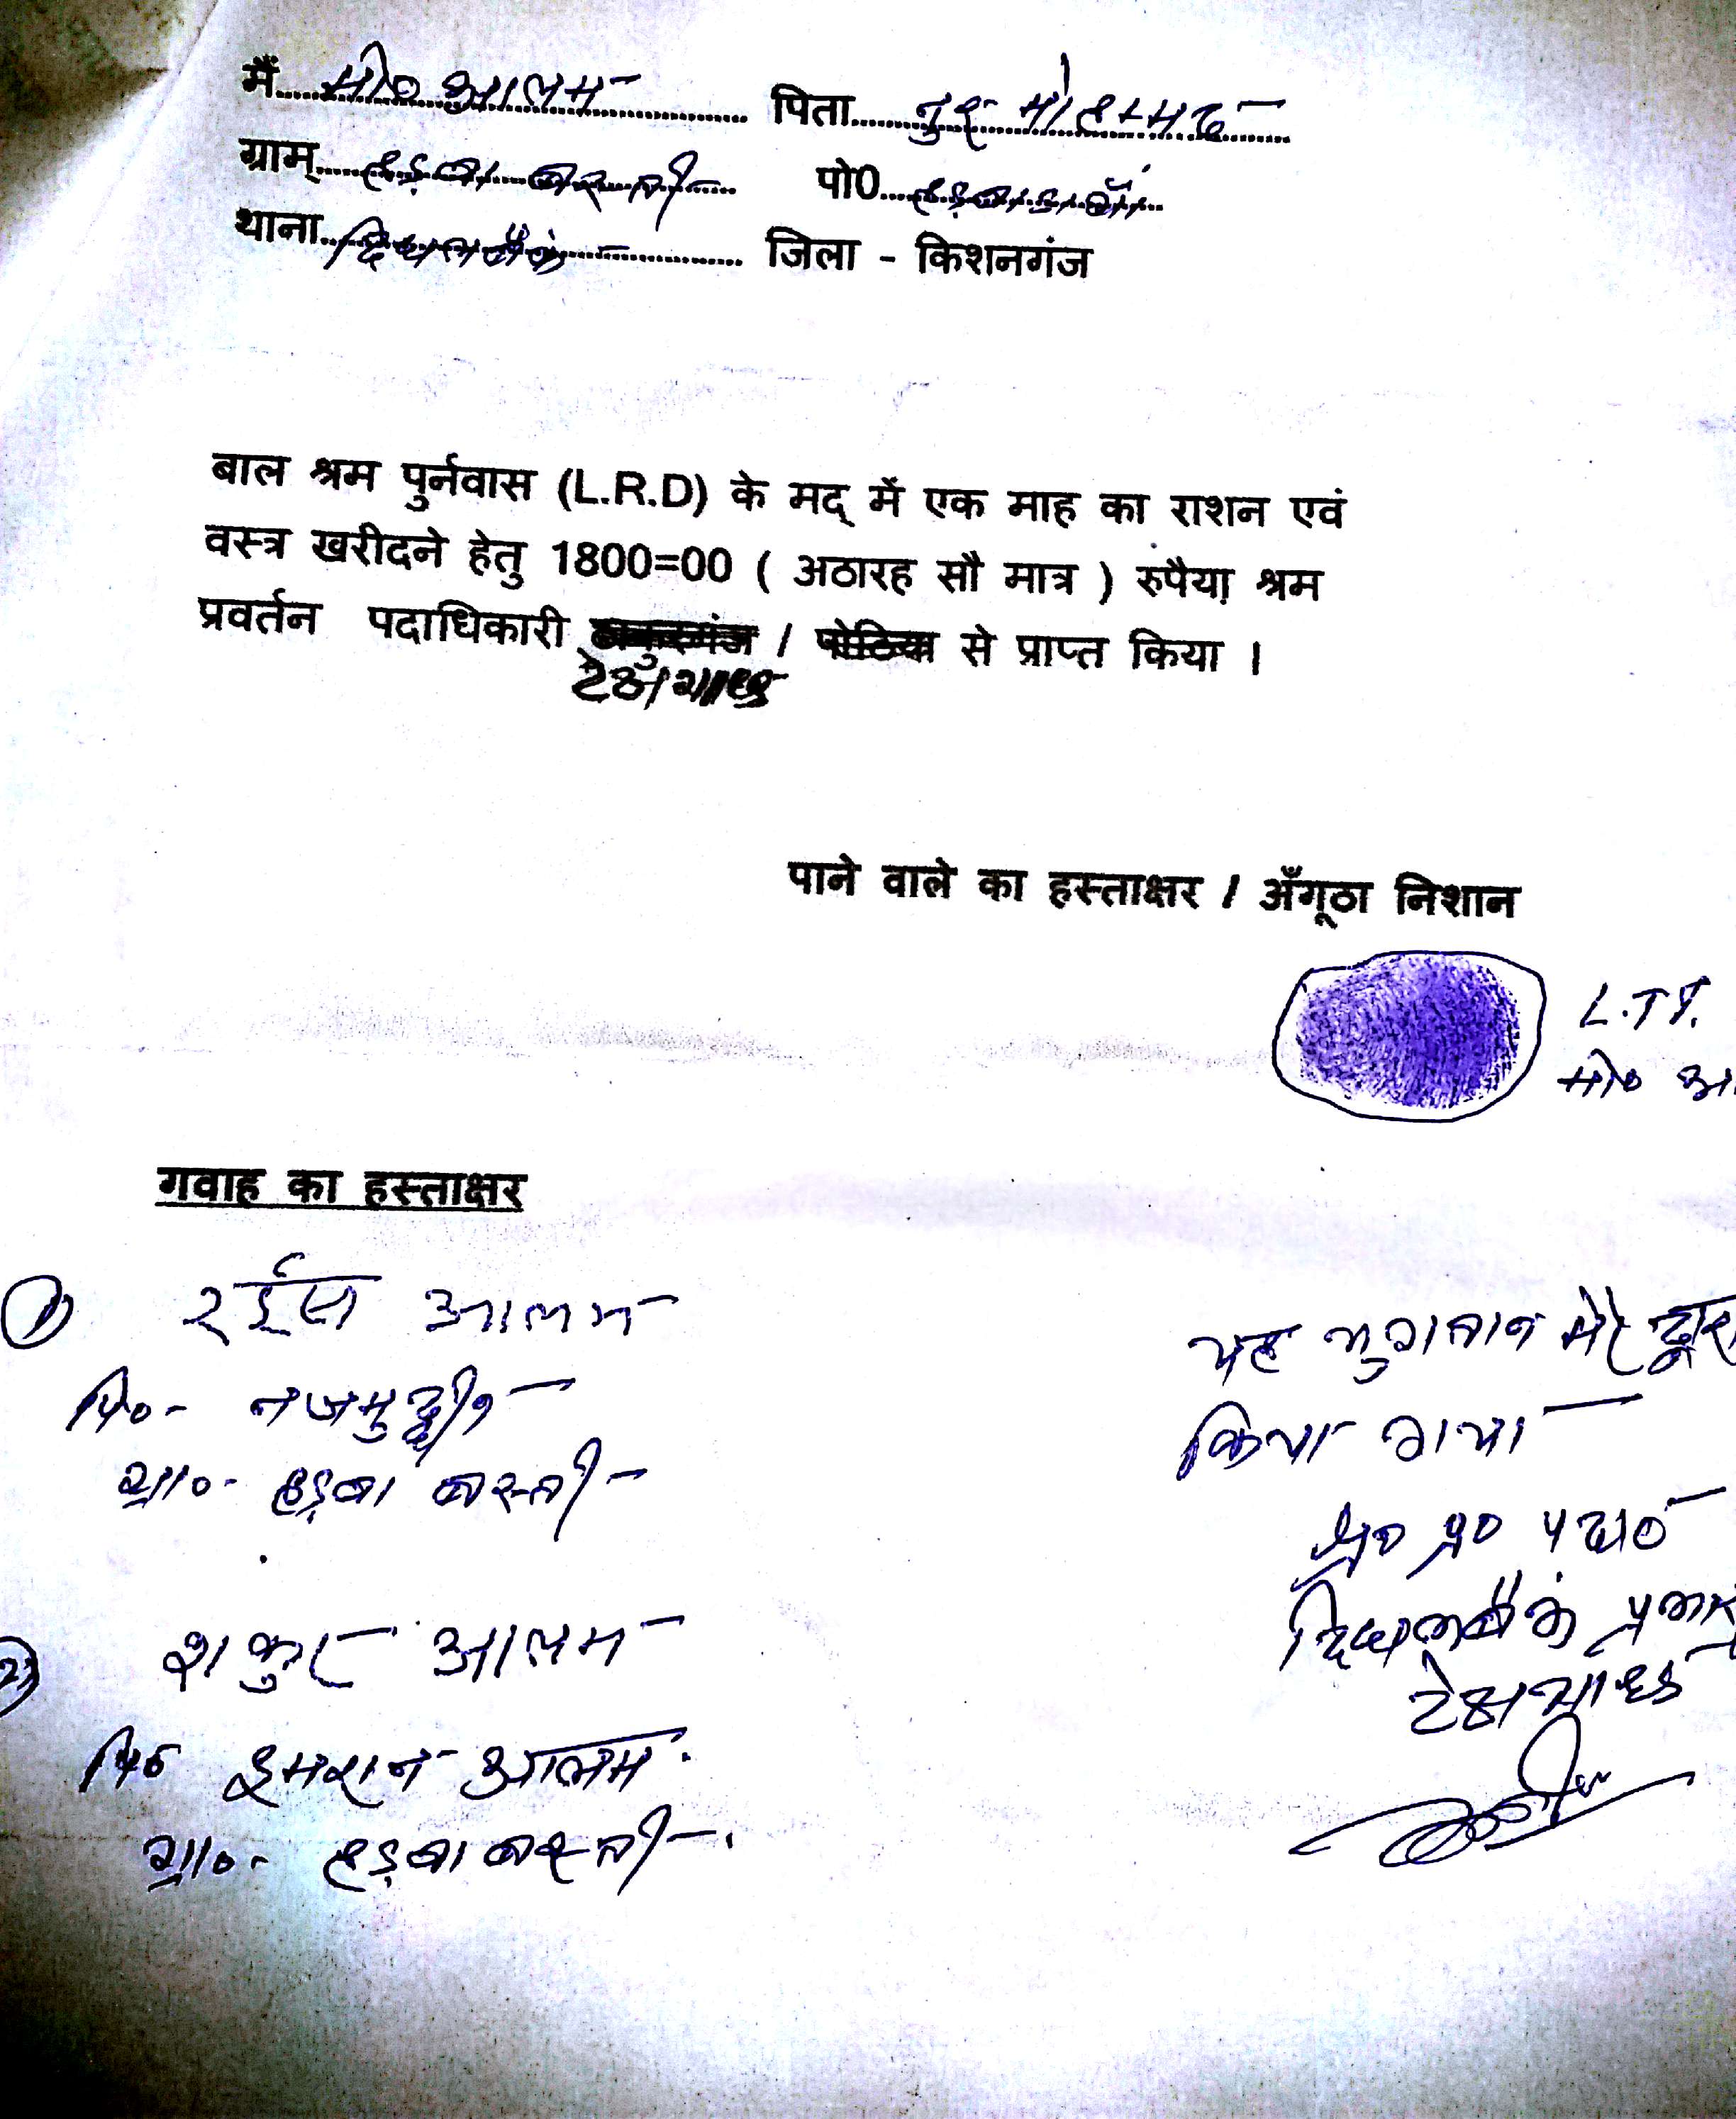 मैं मो० आलम पिता नुर मोहम्मद
ग्राम् हड़वा बस्ती पो0
थाना दिघलबैंक जिला - किशनगंज
बाल श्रम पुर्नवास (L.R.D) के मद् में एक माह का राशन एवं
वस्त्र खरीदने हेतु 1800=00 ( अठारह सौ मात्र ) रुपैया श्रम
प्रवर्तन पदाधिकारी ठाकुरगंज / पोठिया से प्राप्त किया ।
टेढ़ागाछ
पाने वाले का हस्ताक्षर / अँगूठा निशान
L.T.I.
मो० आ
गवाह का हस्ताक्षर
1 रईस आलम
पि०- नजमुद्दीन
ग्रा०- हड़वा बस्ती
2 शकुर आलम
पि० इमरान आलम
ग्रा०- हड़वा बस्ती
यह भुगतान मेरे द्वारा
किया गया
श्र० प्र० पदा०
दिघलबैंक
टेढ़ागाछ